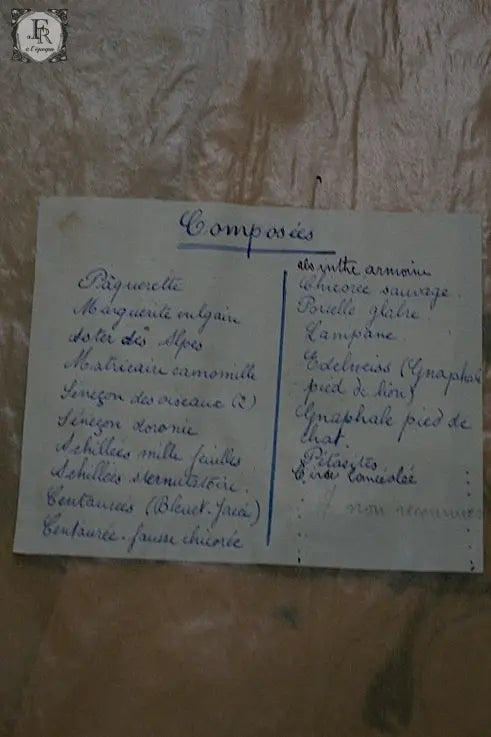 FR
à l'époque
Composées
Pâquerette
Marguerite vulgaire
Aster des Alpes
Matricaire camomille
Séneçon des oiseaux (2)
Séneçon doronic
Achillées mille feuilles
Achillées sternutatoire
Centaurées (Bleuet-Jacée)
Centaurée-fausse chicorée
absinthe armoise
Chicorée sauvage
glabre
Lampsane
Edelweiss (Gnaphale
pied de lion)
Gnaphale pied de
chat
Pétasites
lancéolée
non reconnues